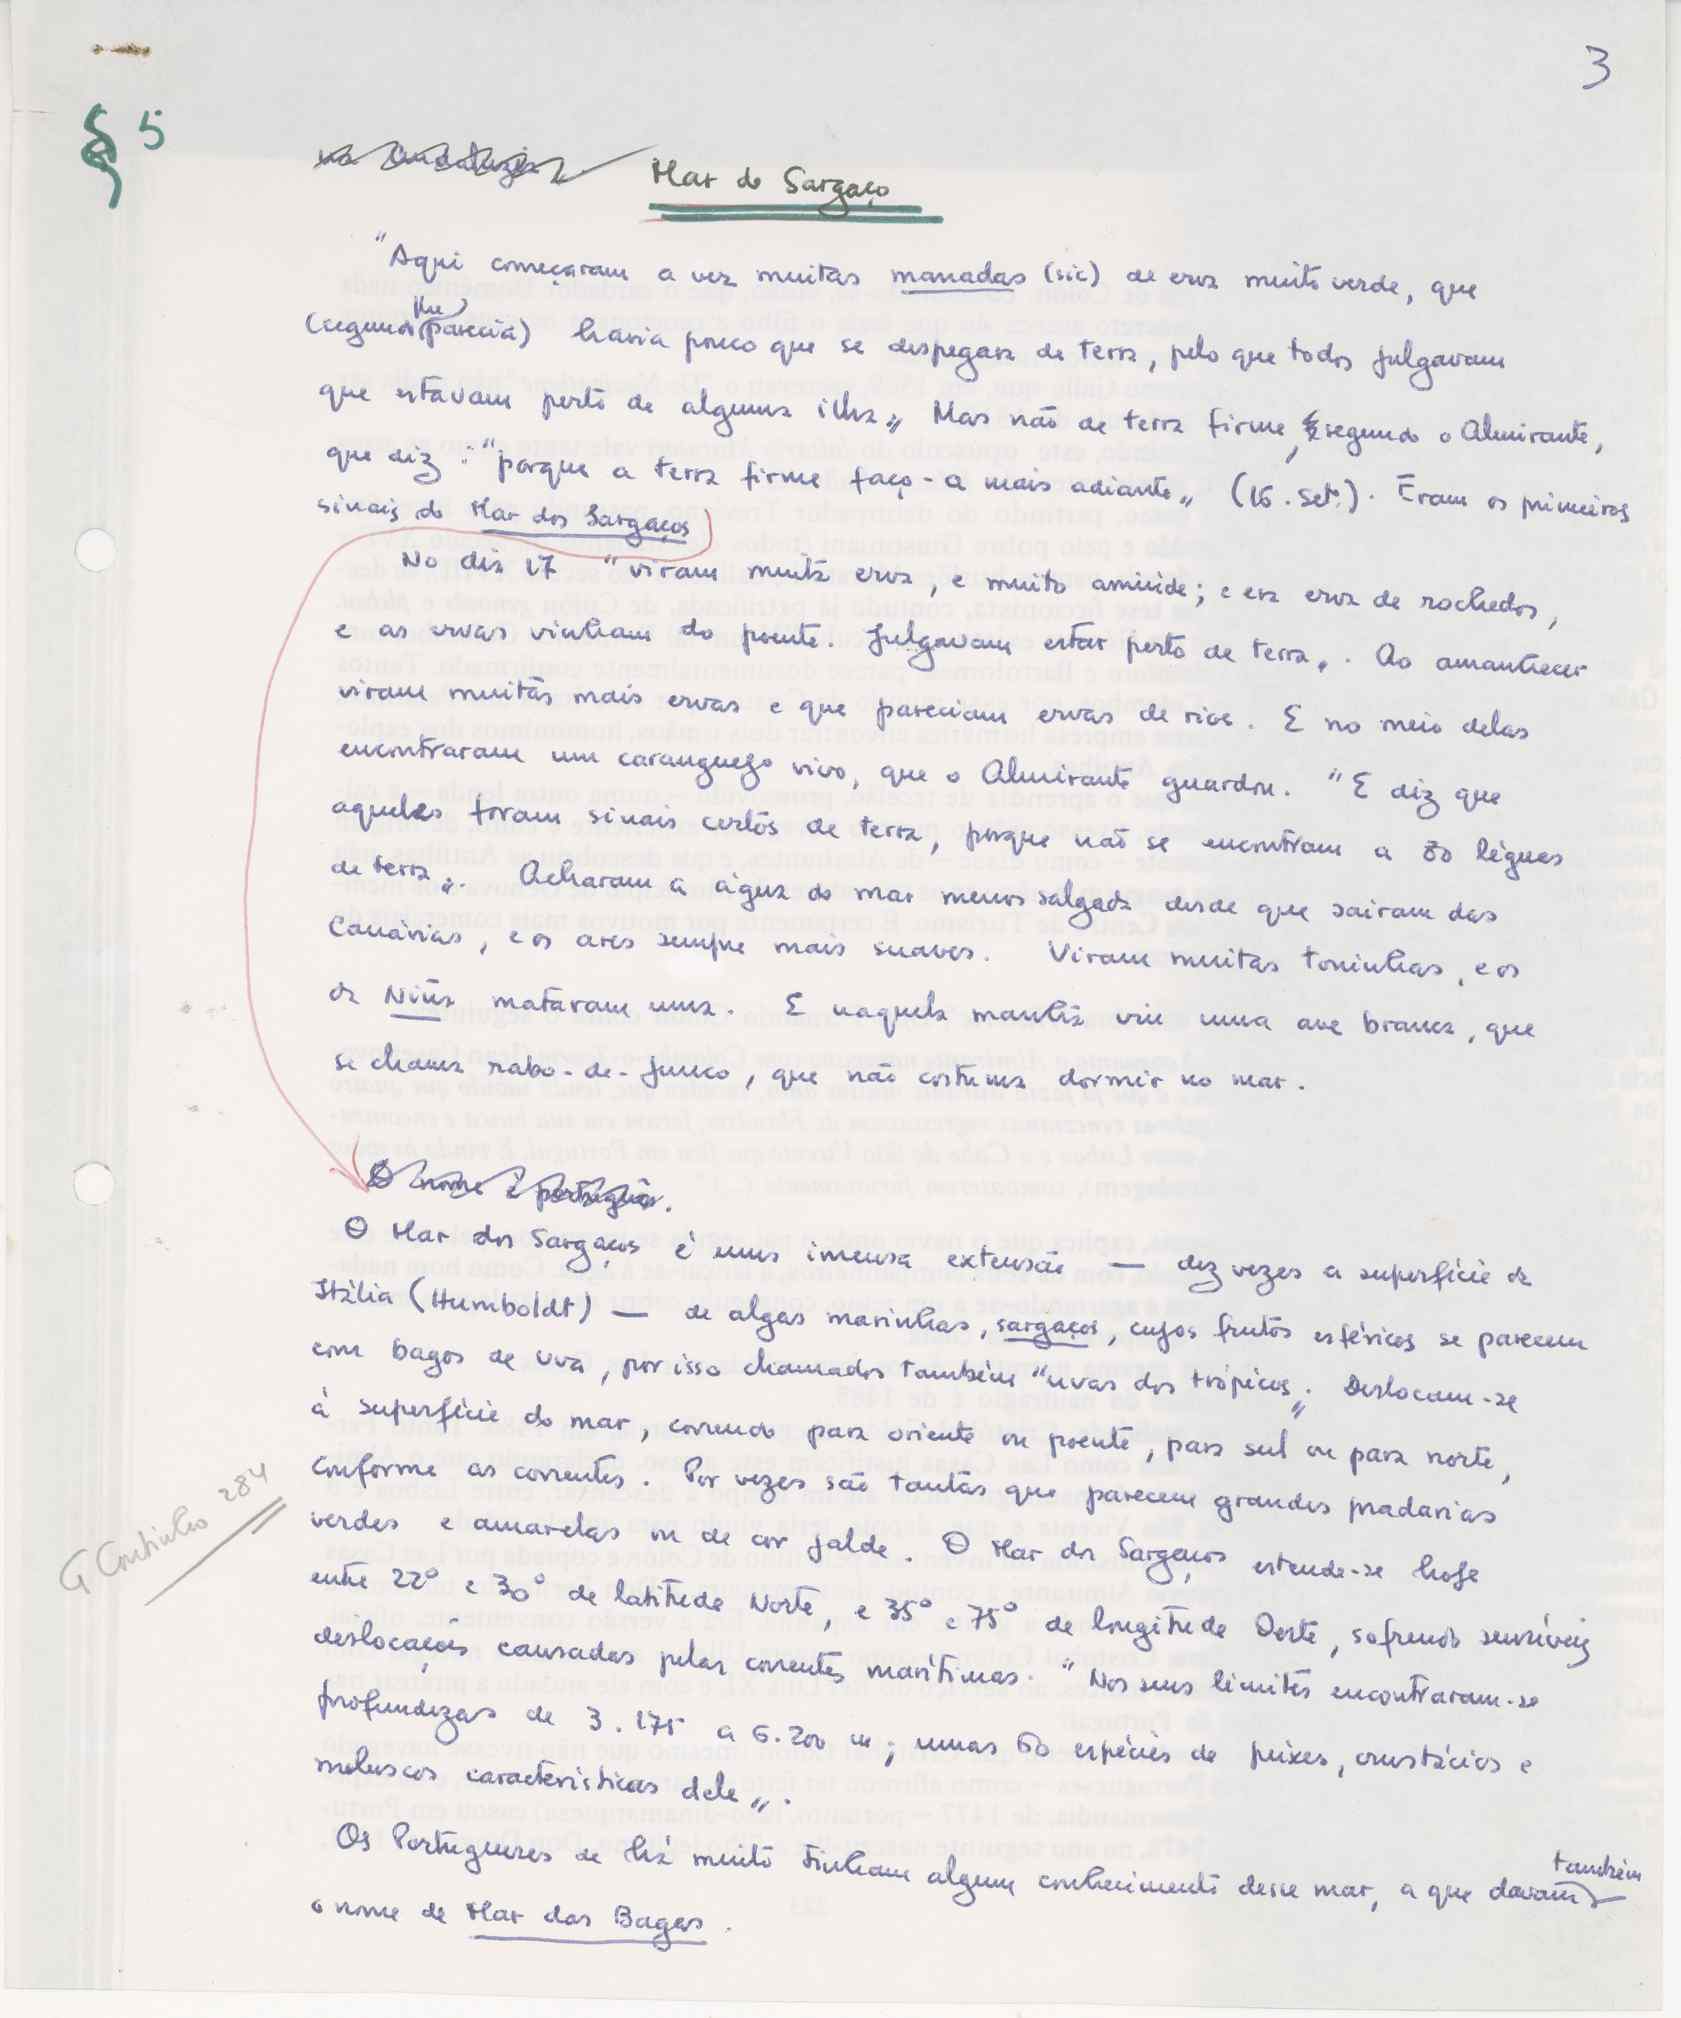 3
§ 5
Mar do Sargaço
"Aqui começaram a ver muitas manadas (sic) de erva muito verde, que
(segundo lhe parecia) havia pouco que se despegara de terra, pelo que todos julgavam
que estavam perto de alguma ilha„ Mas não de terra firme, segundo o Almirante,
que diz: "porque a terra firme faço-a mais adiante„ (16. Set.). Eram os primeiros
sinais do Mar dos Sargaços
No dia 17 "viram muita erva, e muito amiúde; e era erva de rochedos,
e as ervas vinham do poente. Julgavam estar perto de terra„. Ao amanhecer
viram muitas mais ervas e que pareciam ervas de rios. E no meio delas
encontraram um caranguejo vivo, que o Almirante guardou. "E diz que
aqueles foram sinais certos de terra, porque não se encontram a 80 léguas
de terra„. Acharam a água do mar menos salgada desde que sairam das
Canárias, e os ares sempre mais suaves. Viram muitas toninhas, e os
da Niña mataram uma. E naquela manhã viu uma ave branca, que
se chama rabo-de-junco, que não costuma dormir no mar.
O nome é português.
O Mar dos Sargaços é uma imensa extensão — dez vezes a superfície da
Itália (Humboldt) — de algas marinhas, sargaços, cujos frutos esféricos se parecem
com bagos de uva, por isso chamados também "uvas dos trópicos„. Deslocam-se
à superfície do mar, correndo para oriente ou poente, para sul ou para norte,
conforme as correntes. Por vezes são tantas que parecem grandes pradarias
verdes e amarelas ou de cor jalde. O Mar dos Sargaços estende-se hoje
entre 22º e 30º de latitude Norte, e 35º e 75º de longitude Oeste, sofrendo sensíveis
deslocações causadas pelas correntes marítimas. "Nos seus limites encontraram-se
profundezas de 3.175 a 6.200 m; umas 60 espécies de peixes, crustácios e
moluscos características dele„.
Os Portugueses de há muito tinham algum conhecimento desse mar, a que davam também
o nome de Mar das Bagas.
G Coutinho 284